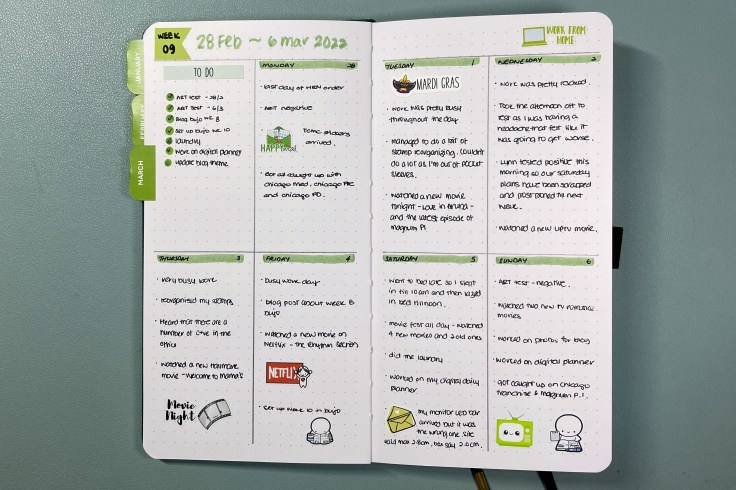 WEEK
09
28 Feb ~ 6 mar 2022
WORK FROM
HOME
JANUARY
FEBRUARY
MARCH
TO DO
ART TEST - 28/2
ART TEST - 6/3
Blog bujo WK 8
Set up bujo WK 10
laundry
Work on digital planner
update blog theme
MONDAY 28
· last day of
order
· ART negative
· Some stickers
arrived.
HAPPY
· Got all caught up with
chicago med, chicago fire
and chicago PD.
TUESDAY 1
MARDI GRAS
· Work was pretty busy
throughout the day
· Managed to do a bit of
stamp reorganizing. Couldn't
do a lot as I'm out of pocket
sleeves.
· Watched a new movie
tonight - Love in
-
and the latest episode of
magnum PI
WEDNESDAY 2
· Work was pretty packed.
· Took the afternoon off to
rest as I was having a
headache that felt like it
was going to get worse.
· Lynn tested positive this
morning so our saturday
plans have been scrapped
and postponed til next
week.
· Watched a new UPtv movie.
THURSDAY 3
· Very busy work
· reorganised my stamps
· Heard that there are a
number of C+ve in the
office
· Watched a new Hallmark
movie - Welcome to Mama's
Movie
Night
FRIDAY 4
· Busy work day
· Blog post about week 8
bujo
· Watched a new movie on
Netflix - The
section
NETFLIX
· Set up week 10 in bujo
SATURDAY 5
· Went to bed late so I slept
in til 10am and then lazed
in bed til noon.
· movie fest all day - watched
4 new movies and 2 old ones
· did the laundry
· worked on my digital daily
planner
· my monitor LED bar
arrived but it was
the wrong one. Site
said max 2.8cm, box say 2.0cm.
SUNDAY 6
· ART test - negative.
· Watched two new tv romance
movies
· Worked on photos for blog
· worked on digital planner
· got caught up on chicago
franchise & magnum P.I.